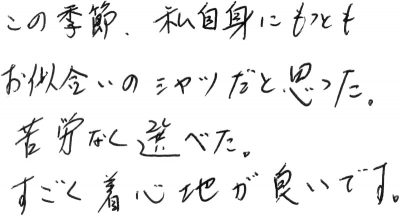 この季節、私自身にもっとも
お似合いのシャツだと思った。
苦労なく選べた。
すごく着心地が良いです。